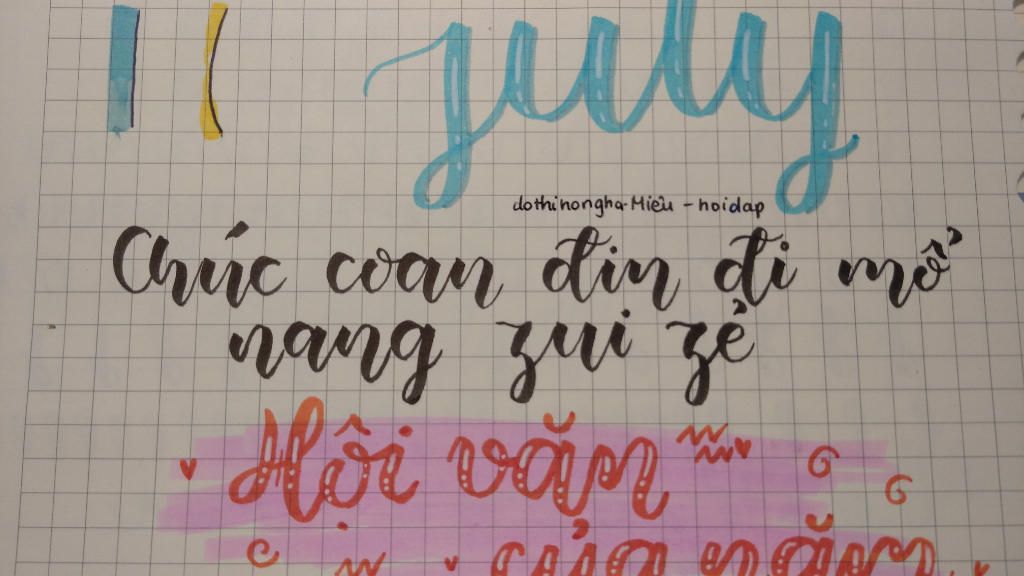 july
dothinongha-Miêu - hoidap
Chúc coan đin đi mổ
nang zui zẻ
Hôi văn
của năm